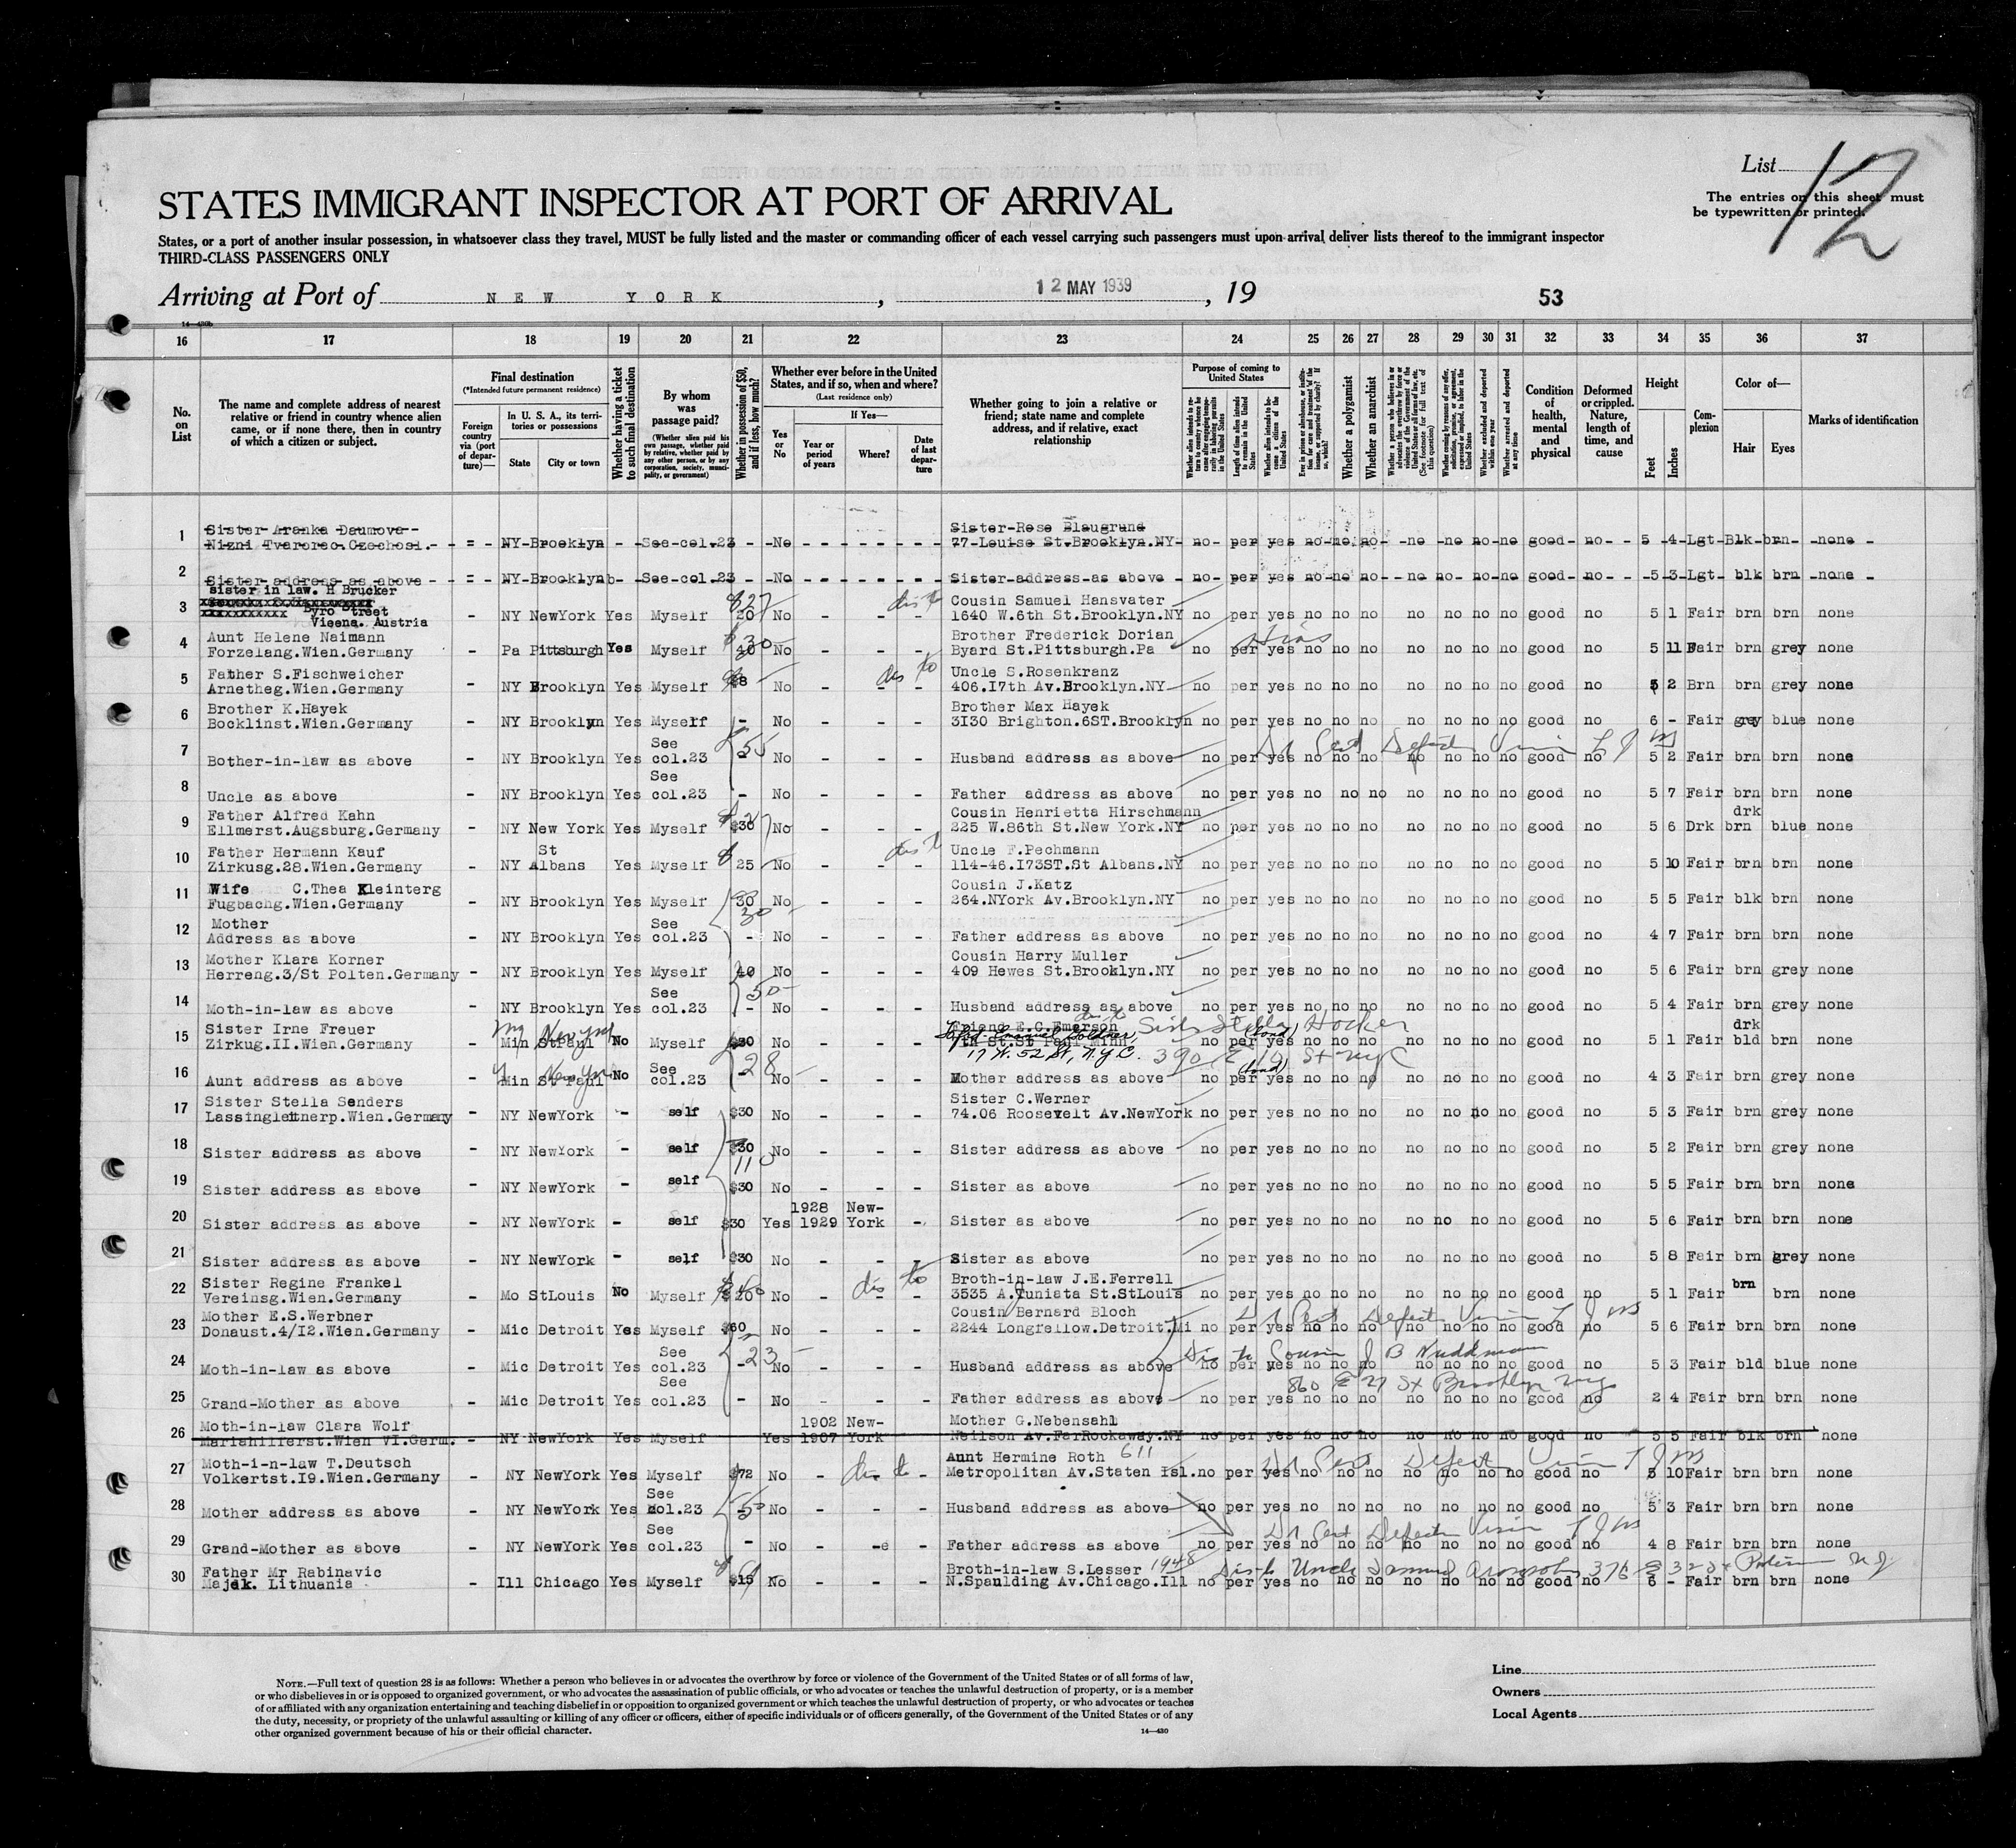 List 12
The entries on this sheet must
be typewritten or printed.
STATES IMMIGRANT INSPECTOR AT PORT OF ARRIVAL
States, or a port of another insular possession, in whatsoever class they travel, MUST be fully listed and the master or commanding officer of each vessel carrying such passengers must upon arrival deliver lists thereof to the immigrant inspector
THIRD-CLASS PASSENGERS ONLY
Arriving at Port of NEW YORK, 12 MAY 1939, 19 53
16 17 18 19 20 21 22 23 24 25 26 27 28 29 30 31 32 33 34 35 36 37
No. on List
The name and complete address of nearest relative or friend in country whence alien came, or if none there, then in country of which a citizen or subject.
Final destination
(*Intended future permanent residence)
Foreign country via (port of departure)—
In U. S. A., its territories or possessions
State City or town
Whether having a ticket to such final destination
By whom was passage paid?
(Whether alien paid his own passage, whether paid by relative, whether paid by any other person, or by any corporation, society, municipality, or government)
Whether in possession of $50, and if less, how much?
Whether ever before in the United States, and if so, when and where?
(Last residence only)
Yes or No
If Yes—
Year or period of years
Where?
Date of last departure
Whether going to join a relative or friend; state name and complete address, and if relative, exact relationship
Purpose of coming to United States
Whether a polygamist
Whether an anarchist
Condition of health, mental and physical
Deformed or crippled. Nature, length of time, and cause
Height
Feet Inches
Complexion
Color of—
Hair Eyes
Marks of identification
1 Sister Aranka Daumova Sister-Rose Blaugrund
Nizni Tvarorec.Czechosl. - NY-Brooklyn - See-col.23 - No 77-Louise St.Brooklyn.NY no per yes no no no no no no no good no 5 4 Lgt Blk brn none
2 Sister address as above - NY-Brooklyn See-col.23 - No Sister-address-as above no per yes no no no no no no no good no 5 3 Lgt blk brn none
3 sister in law. H Brucker Cousin Samuel Hansvater
Byro Street
Vieena. Austria - NY NewYork Yes Myself 20 27 No - - 1640 W.6th St.Brooklyn.NY no per yes no no no no no no no good no 5 1 Fair brn brn none
4 Aunt Helene Naimann Brother Frederick Dorian Hias
Forzelang.Wien.Germany - Pa Pittsburgh Yes Myself 40 30 No - - - Byard St.Pittsburgh.Pa no per yes no no no no no no no good no 5 11 Fair brn grey none
5 Father S.Fischweicher dis to Uncle S.Rosenkranz
Arnetheg.Wien.Germany - NY Brooklyn Yes Myself $8 No - - - 406.I7th Av.Brooklyn.NY no per yes no no no no no no no good no 5 2 Brn brn grey none
6 Brother K.Hayek Brother Max Hayek
Bocklinst.Wien.Germany - NY Brooklyn Yes Myself - No - - - 3I30 Brighton.6ST.Brooklyn no per yes no no no no no no no good no 6 - Fair grey blue none
7 See 55 Dr Cert Defective Vision
Bother-in-law as above - NY Brooklyn Yes col.23 - No - - - Husband address as above no per yes no no no no no no no good no 5 2 Fair brn brn none
8 See
Uncle as above - NY Brooklyn Yes col.23 - No - - - Father address as above no per yes no no no no no no no good no 5 7 Fair brn brn none
9 Father Alfred Kahn Cousin Henrietta Hirschmann drk
Ellmerst.Augsburg.Germany - NY New York Yes Myself $30 No - - - 225 W.86th St.New York.NY no per yes no no no no no no no good no 5 6 Drk brn blue none
10 Father Hermann Kauf St Uncle F.Pechmann
Zirkusg.28.Wien.Germany - NY Albans Yes Myself 25 No - - - 114-46.I73ST.St Albans.NY no per yes no no no no no no no good no 5 10 Fair brn brn none
11 Wife C.Thea Kleinterg Cousin J.Katz
Fugbachg.Wien.Germany - NY Brooklyn Yes Myself 30 No - - - 264.NYork Av.Brooklyn.NY no per yes no no no no no no no good no 5 5 Fair blk brn none
12 Mother See 30
Address as above - NY Brooklyn Yes col.23 - No - - - Father address as above no per yes no no no no no no no good no 4 7 Fair brn brn none
13 Mother Klara Korner Cousin Harry Muller
Herreng.3/St Polten.Germany - NY Brooklyn Yes Myself 40 No - - - 409 Hewes St.Brooklyn.NY no per yes no no no no no no no good no 5 6 Fair brn grey none
14 See 50
Moth-in-law as above - NY Brooklyn Yes col.23 - No - - - Husband address as above no per yes no no no no no no no good no 5 4 Fair brn grey none
15 Sister Irne Freuer Friend E.C.Emerson Sister Stella Hocker drk
Zirkug.II.Wien.Germany - Min StPaul No Myself $30 No - - - 7th St.St Paul Minn (bond) no per yes no no no no no no no good no 5 1 Fair bld brn none
17 W. 52 St, N.Y.C. 390 St NYC
16 See 28 (bond)
Aunt address as above - Min St Paul No col.23 - No - - - Mother address as above no per yes no no no no no no no good no 4 3 Fair brn grey none
17 Sister Stella Senders Sister C.Werner
Lassingleitnerp.Wien.Germany - NY NewYork - self $30 No - - - 74.06 Roosevelt Av.NewYork no per yes no no no no no no no good no 5 3 Fair brn grey none
18 Sister address as above - NY NewYork - self $30 No - - - Sister address as above no per yes no no no no no no no good no 5 2 Fair brn grey none
19 Sister address as above - NY NewYork - self $30 No - - - Sister as above no per yes no no no no no no no good no 5 5 Fair brn brn none
20 1928 New-
Sister address as above - NY NewYork - self $30 Yes 1929 York - Sister as above no per yes no no no no no no no good no 5 6 Fair brn brn none
21 Sister address as above - NY NewYork - self $30 No - - - Sister as above no per yes no no no no no no no good no 5 8 Fair brn grey none
22 Sister Regine Frankel dis to Broth-in-law J.E.Ferrell brn
Vereinsg.Wien.Germany - Mo StLouis No Myself $20 No - - - 3535 A.Juniata St.StLouis no per yes no no no no no no no good no 5 1 Fair brn none
23 Mother E.S.Werbner Cousin Bernard Bloch Dr Cert Defective Vision
Donaust.4/I2.Wien.Germany - Mic Detroit Yes Myself $60 No - - - 2244 Longfellow.Detroit.Mi no per yes no no no no no no no good no 5 6 Fair brn brn none
24 See 23 Dis to Cousin J B
Moth-in-law as above - Mic Detroit Yes col.23 - No - - - Husband address as above no per yes no no no no no no no good no 5 3 Fair bld blue none
25 See 860 E 27 St Brooklyn NY
Grand-Mother as above - Mic Detroit Yes col.23 - No - - - Father address as above no per yes no no no no no no no good no 2 4 Fair brn brn none
26 Moth-in-law Clara Wolf 1902 New- Mother G.Nebensahl
Mariahilferst.Wien VI.Germ. - NY NewYork Yes Myself Yes 1907 York Neilson Av.FarRockaway.NY no per yes no no no no no no no good no 5 5 Fair blk brn none
27 Moth-i-n-law T.Deutsch dis to Aunt Hermine Roth 611 Dr Cert Defect Vision
Volkertst.I9.Wien.Germany - NY NewYork Yes Myself $72 No - - Metropolitan Av.Staten Isl. no per yes no no no no no no no good no 5 10 Fair brn brn none
28 See 50
Mother address as above - NY NewYork Yes col.23 - No - - - Husband address as above no per yes no no no no no no no good no 5 3 Fair brn brn none
29 See Dr Cert Defective Vision
Grand-Mother as above - NY NewYork Yes col.23 - No - - Father address as above no per yes no no no no no no no good no 4 8 Fair brn brn none
30 Father Mr Rabinavic Broth-in-law S.Lesser 1948 Dis to Uncle Samuel
Majdk. Lithuania - Ill Chicago Yes Myself $15 No - - - N.Spaulding Av.Chicago.Ill no per yes no no no no no no no good no 6 - Fair brn brn none
NOTE.—Full text of question 28 is as follows: Whether a person who believes in or advocates the overthrow by force or violence of the Government of the United States or of all forms of law,
or who disbelieves in or is opposed to organized government, or who advocates the assassination of public officials, or who advocates or teaches the unlawful destruction of property, or is a member
of or affiliated with any organization entertaining and teaching disbelief in or opposition to organized government or which teaches the unlawful destruction of property, or who advocates or teaches
the duty, necessity, or propriety of the unlawful assaulting or killing of any officer or officers, either of specific individuals or of officers generally, of the Government of the United States or of any
other organized government because of his or their official character.
14—430
Line
Owners
Local Agents